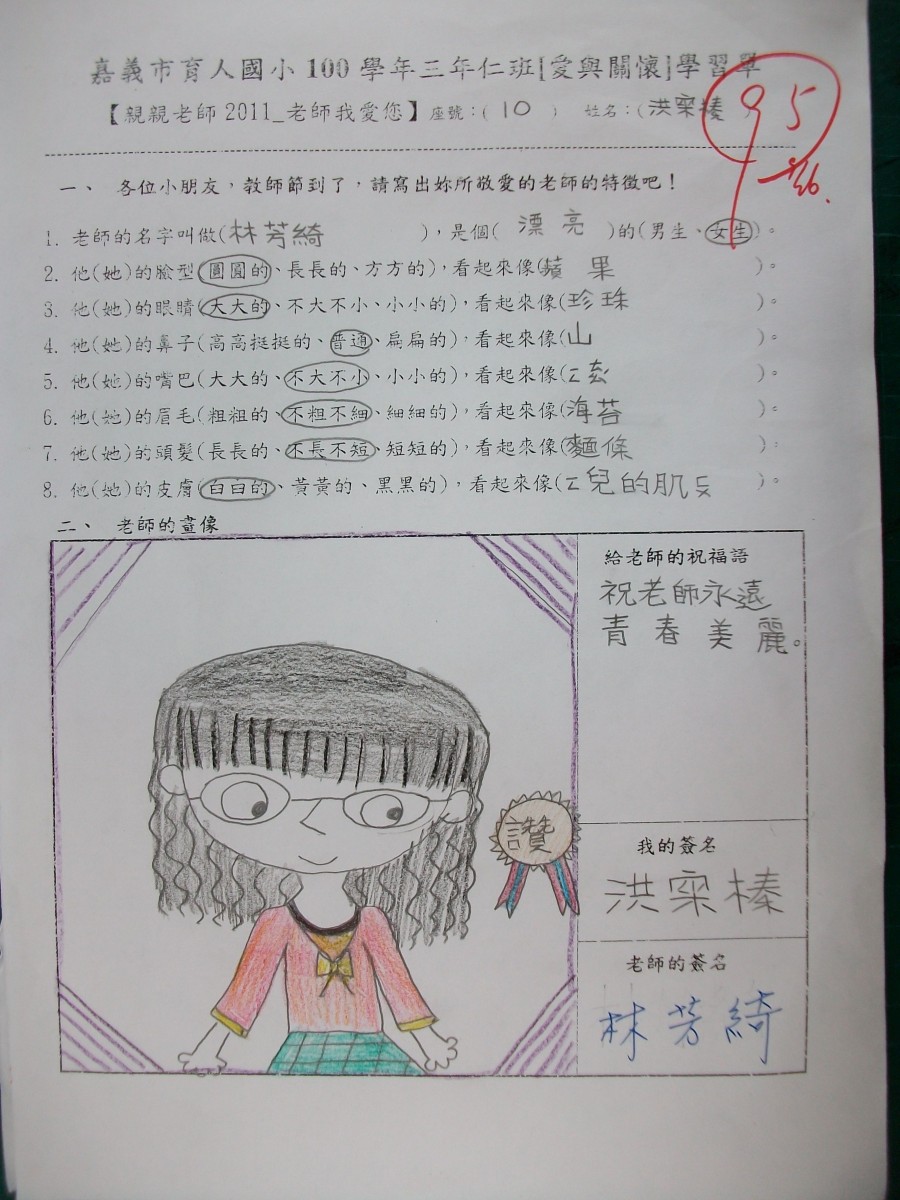 嘉義市育人國小100學年三年仁班[愛與關懷]學習單
【親親老師2011_老師我愛您】座號:( 10 ) 姓名:(洪寀榛)
95
一、 各位小朋友,教師節到了,請寫出妳所敬愛的老師的特徵吧!
1. 老師的名字叫做(林芳綺),是個( 漂亮 )的(男生、女生)。
2. 他(她)的臉型(圓圓的、長長的、方方的),看起來像(蘋果)。
3. 他(她)的眼睛(大大的、不大不小、小小的),看起來像(珍珠)。
4. 他(她)的鼻子(高高挺挺的、普通、扁扁的),看起來像(山)。
5. 他(她)的嘴巴(大大的、不大不小、小小的),看起來像()。
6. 他(她)的眉毛(粗粗的、不粗不細、細細的),看起來像(海苔)。
7. 他(她)的頭髮(長長的、不長不短、短短的),看起來像(麵條)。
8. 他(她)的皮膚(白白的、黃黃的、黑黑的),看起來像(ㄥ兒的肌ㄈ)。
二、 老師的畫像
給老師的祝福語
祝老師永遠
青春美麗。
讚
我的簽名
洪寀榛
老師的簽名
林芳綺